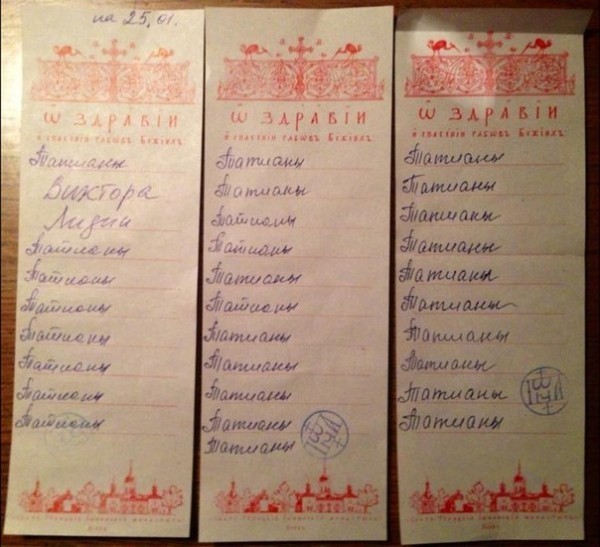 на 25.01.
Ѿ ЗДРАВІИ
И СПАСЕНІИ РАБѠВЪ БОЖІИХЪ
Татианы
Виктора
Лидии
Татианы
Татианы
Татианы
Татианы
Татианы
Татианы
Татианы
Ѿ ЗДРАВІИ
И СПАСЕНІИ РАБѠВЪ БОЖІИХЪ
Татианы
Татианы
Татианы
Татианы
Татианы
Татианы
Татианы
Татианы
Татианы
Татианы
Татианы
Ѿ ЗДРАВІИ
И СПАСЕНІИ РАБѠВЪ БОЖІИХЪ
Татианы
Татианы
Татианы
Татианы
Татианы
Татианы
Татианы
Татианы
Татианы
Татианы